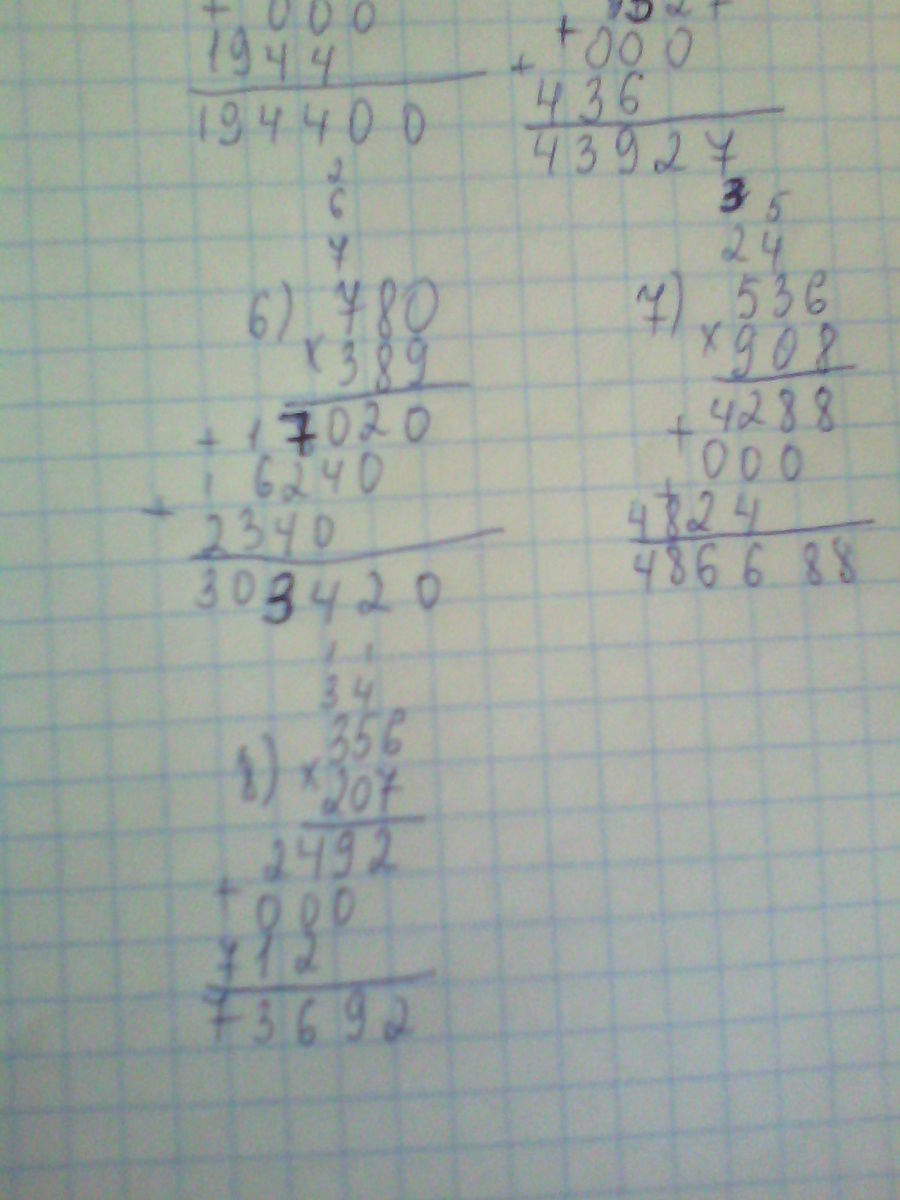 + 000
1944
194400
+ 000
+ 436
43927
2
6
7
6) 780
× 389
+ 17020
16240
+ 2340
303420
3 5
2 4
7) 536
× 908
4288
+ 000
+
4824
486688
1 1
3 4
8) 356
× 207
2492
+ 000
712
73692